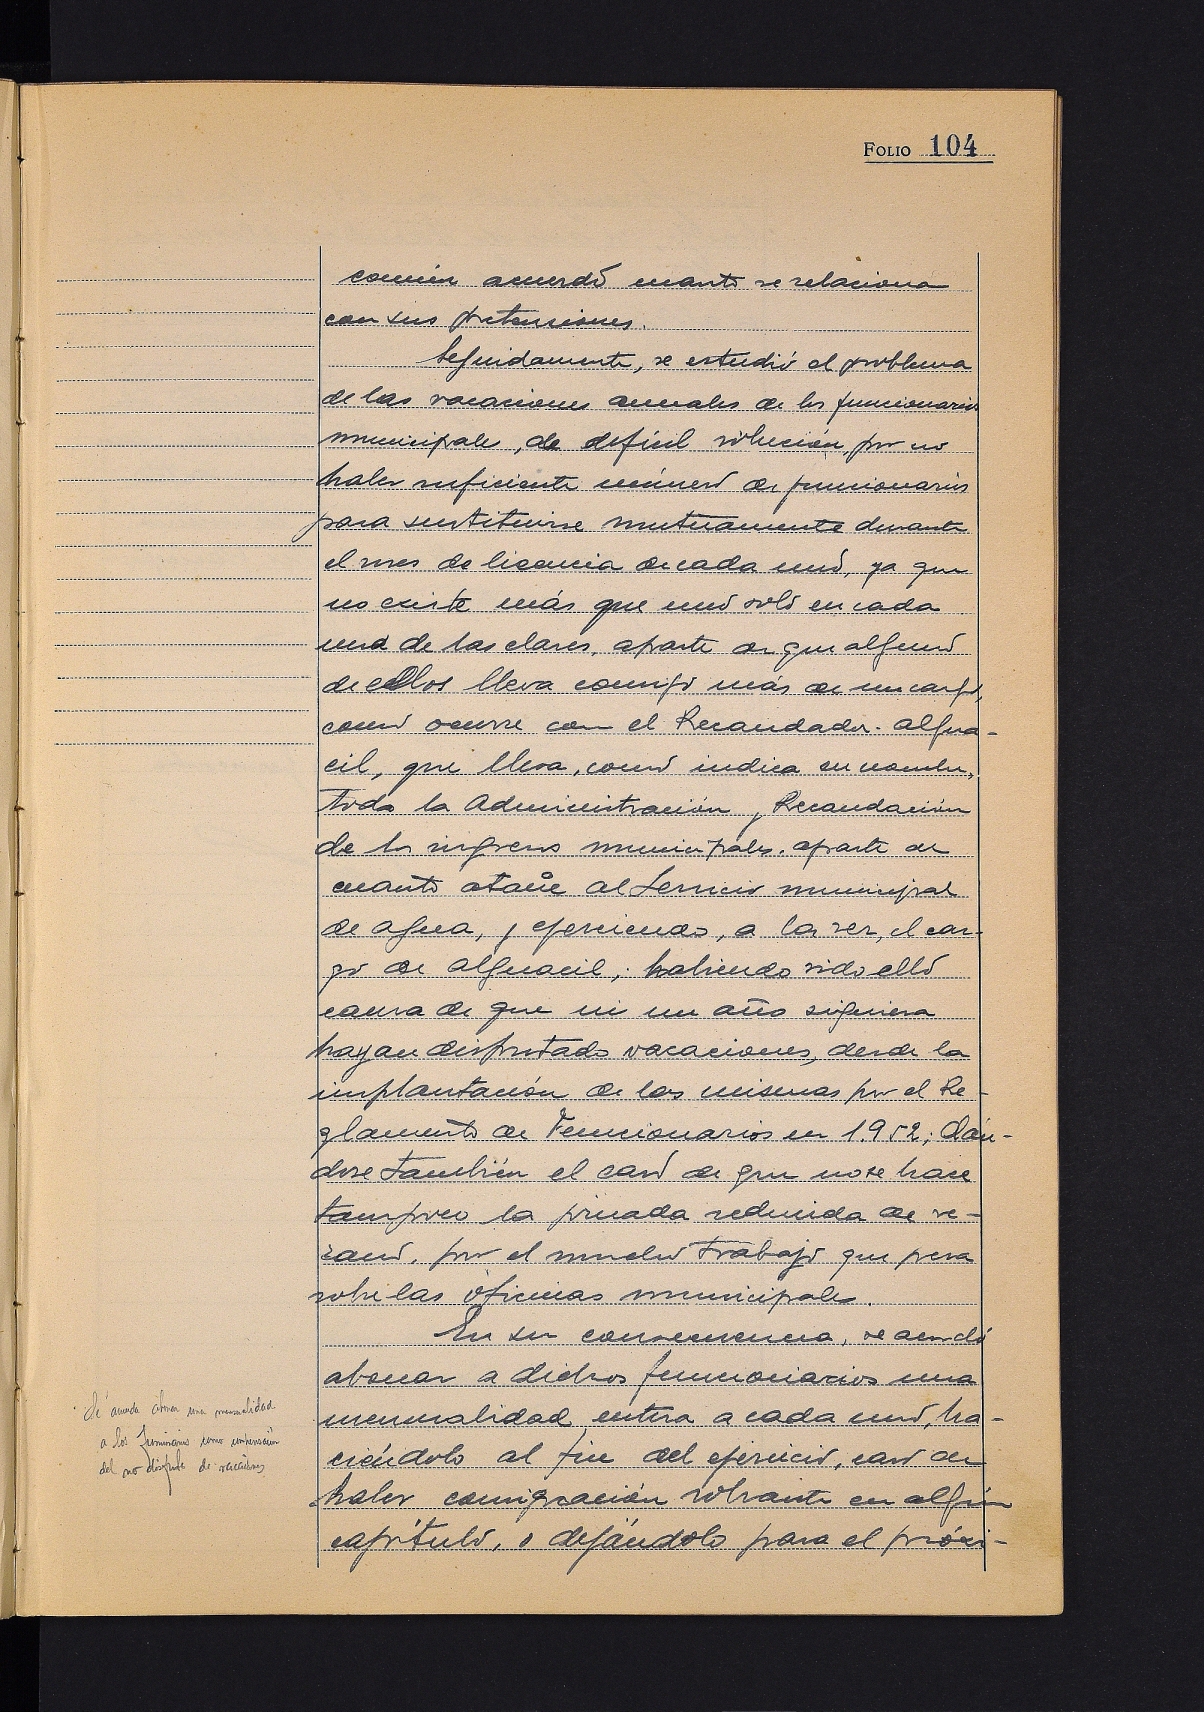 FOLIO 104
común acuerdo cuanto se relaciona
con sus pretensiones.
Seguidamente, se estudió el problema
de las vacaciones anuales de los funcionarios
municipales, de difícil solución, por no
haber suficiente número de funcionarios
para sustituirse mutuamente durante
el mes de licencia de cada uno, ya que
no existe más que uno solo en cada
una de las clases, aparte de que alguno
de ellos lleva consigo más de un cargo,
como ocurre con el Recaudador-algua-
cil, que lleva, como indica su nombre,
toda la Administración y Recaudación
de los ingresos municipales, aparte de
cuanto atañe al Servicio municipal
de agua, y ejerciendo, a la vez, el car-
go de alguacil; habiendo sido ello
causa de que ni un año siquiera
hayan disfrutado vacaciones, desde la
implantación de las mismas por el Re-
glamento de Funcionarios en 1.952; dán-
dose también el caso de que no se hace
tampoco la jornada reducida de ve-
rano, por el mucho trabajo que pesa
sobre las oficinas municipales.
En su consecuencia, se acordó
abonar a dichos funcionarios una
mensualidad entera a cada uno, ha-
ciéndolo al fin del ejercicio, caso de
haber consignación sobrante en algún
capítulo, o dejándolo para el próxi-
Se acuerda abonar una mensualidad
a los funcionarios como compensación
del no disfrute de vacaciones